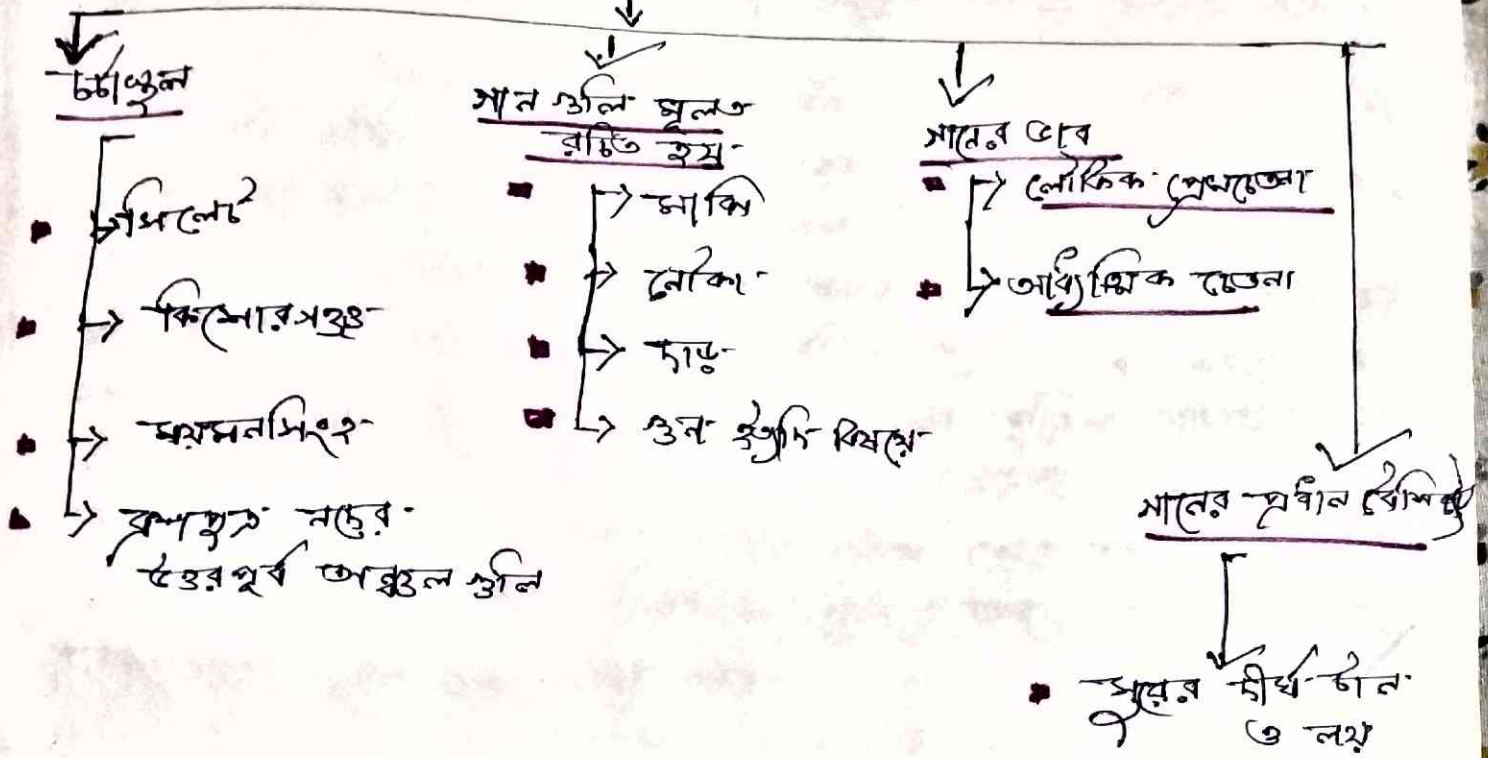 চর্চাস্থল
সিলেট
কিশোরগঞ্জ
ময়মনসিংহ
ব্রহ্মপুত্র নদের
উত্তরপূর্ব অঞ্চল গুলি
গান গুলি মূলত
রচিত হয়
মাঝি
নৌকা
দাঁড়
গুন ইত্যাদি বিষয়ে
গানের ভাব
লৌকিক প্রেমচেতনা
আধ্যাত্মিক চেতনা
গানের প্রধান বৈশিষ্ট্য
সুরের দীর্ঘ টান
ও লয়